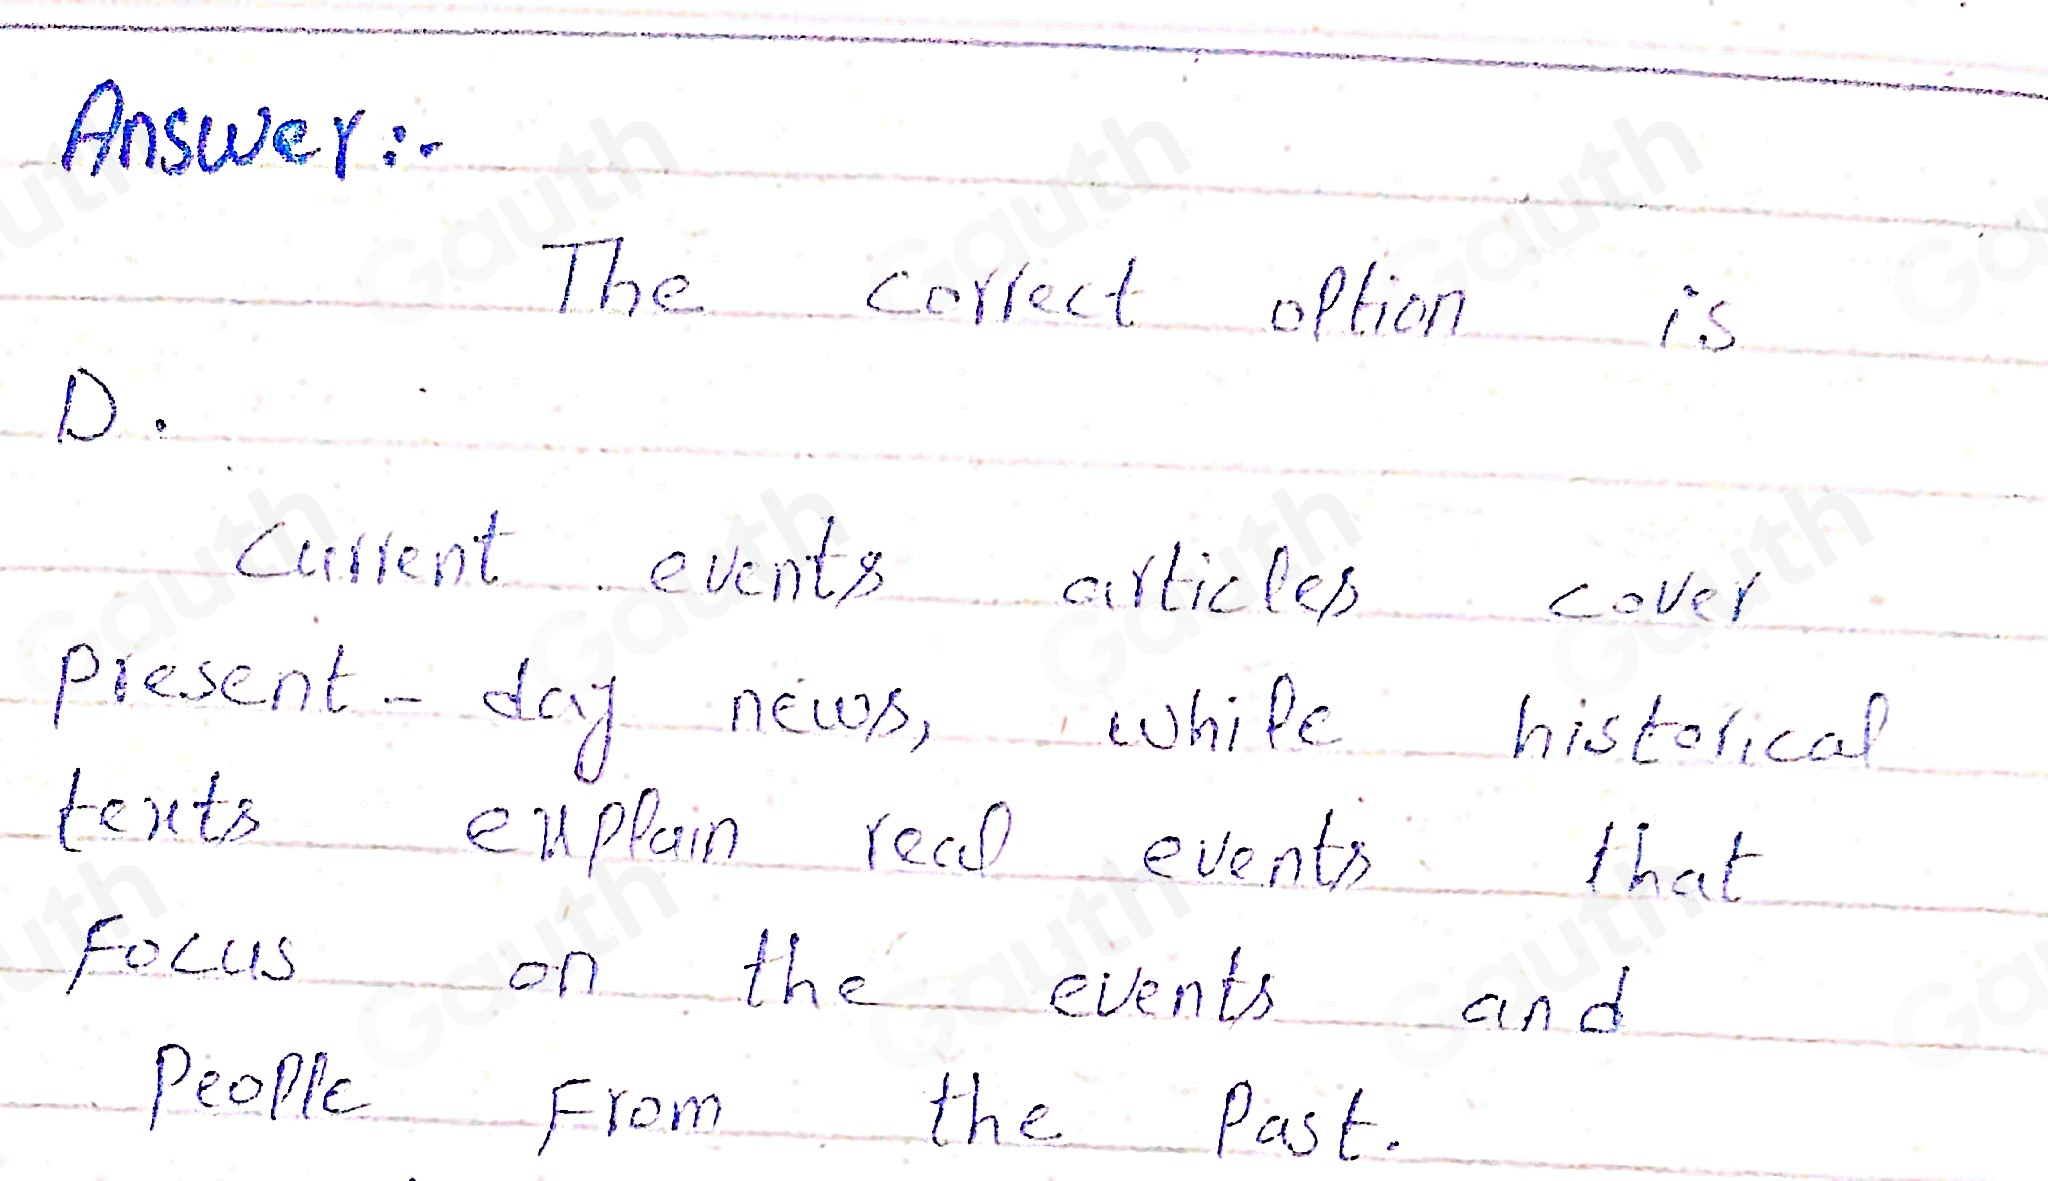 Answer:-
The correct option is
D.
Current events articles cover
present-day news, while historical
texts explain real events that
Focus on the events and
People From the Past.
Gauth